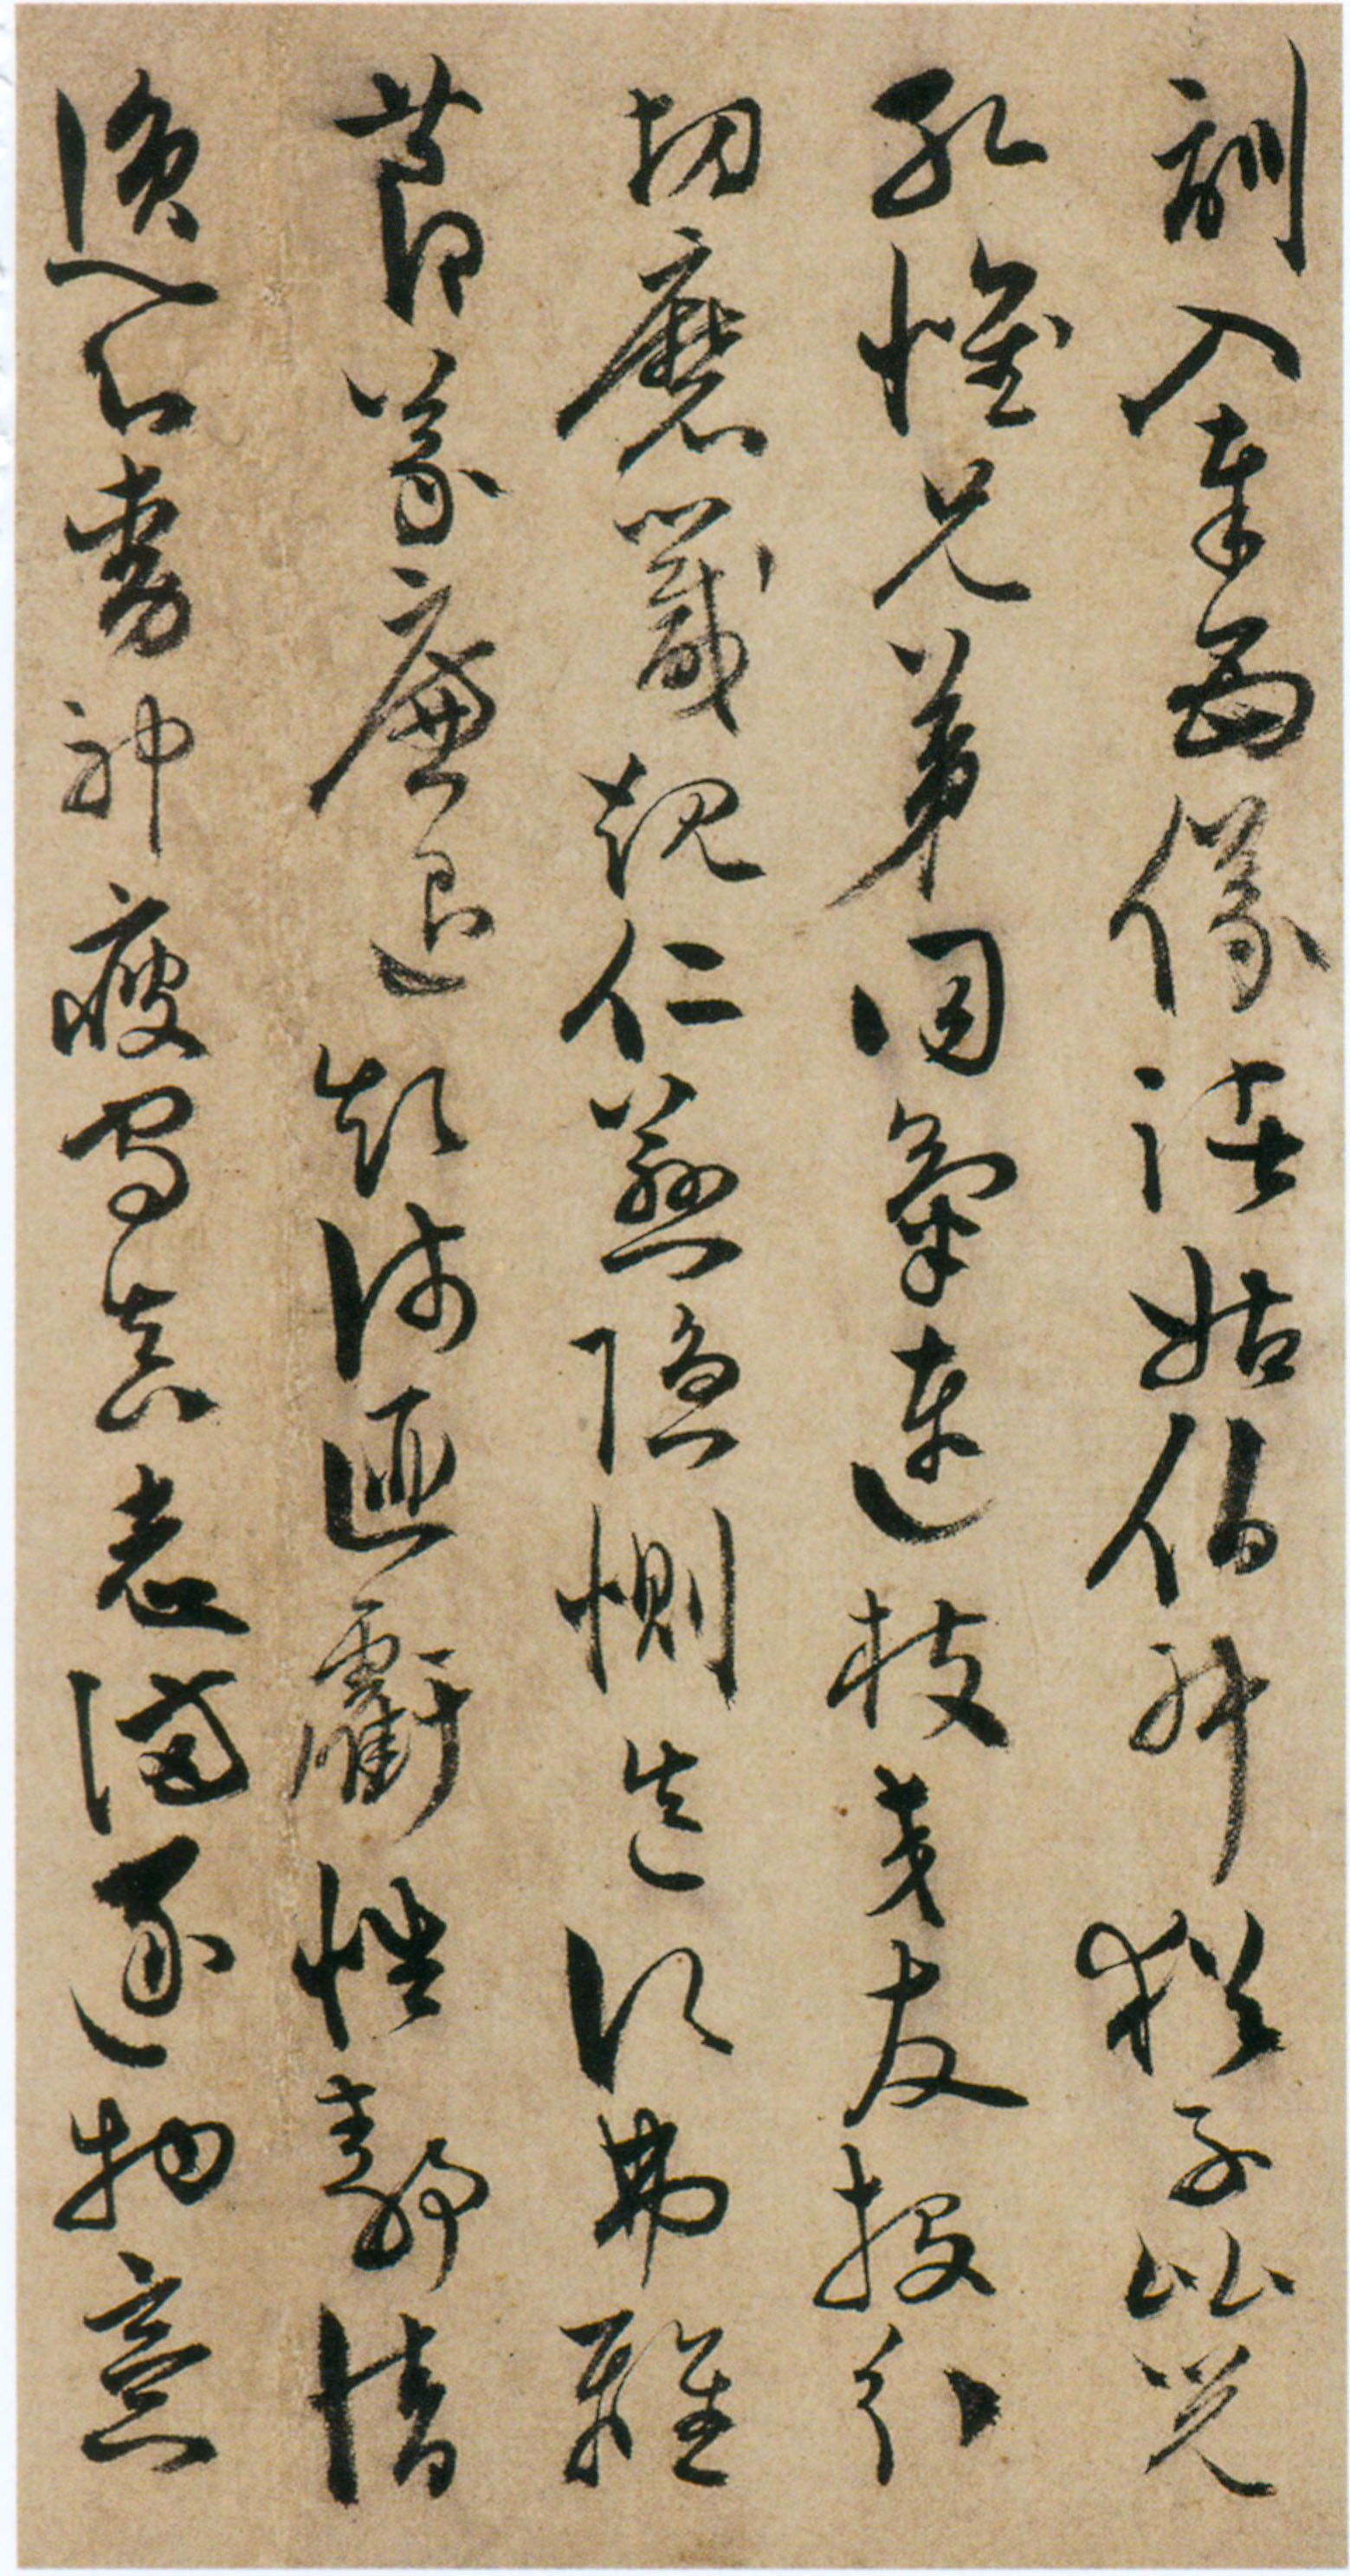 訓入奉母儀諸姑伯叔猶子比兒
孔懷兄弟同氣連枝交友投分
切磨箴規仁慈隱惻造次弗離
節義廉退顛沛匪虧性靜情
逸心動神疲守真志滿逐物意